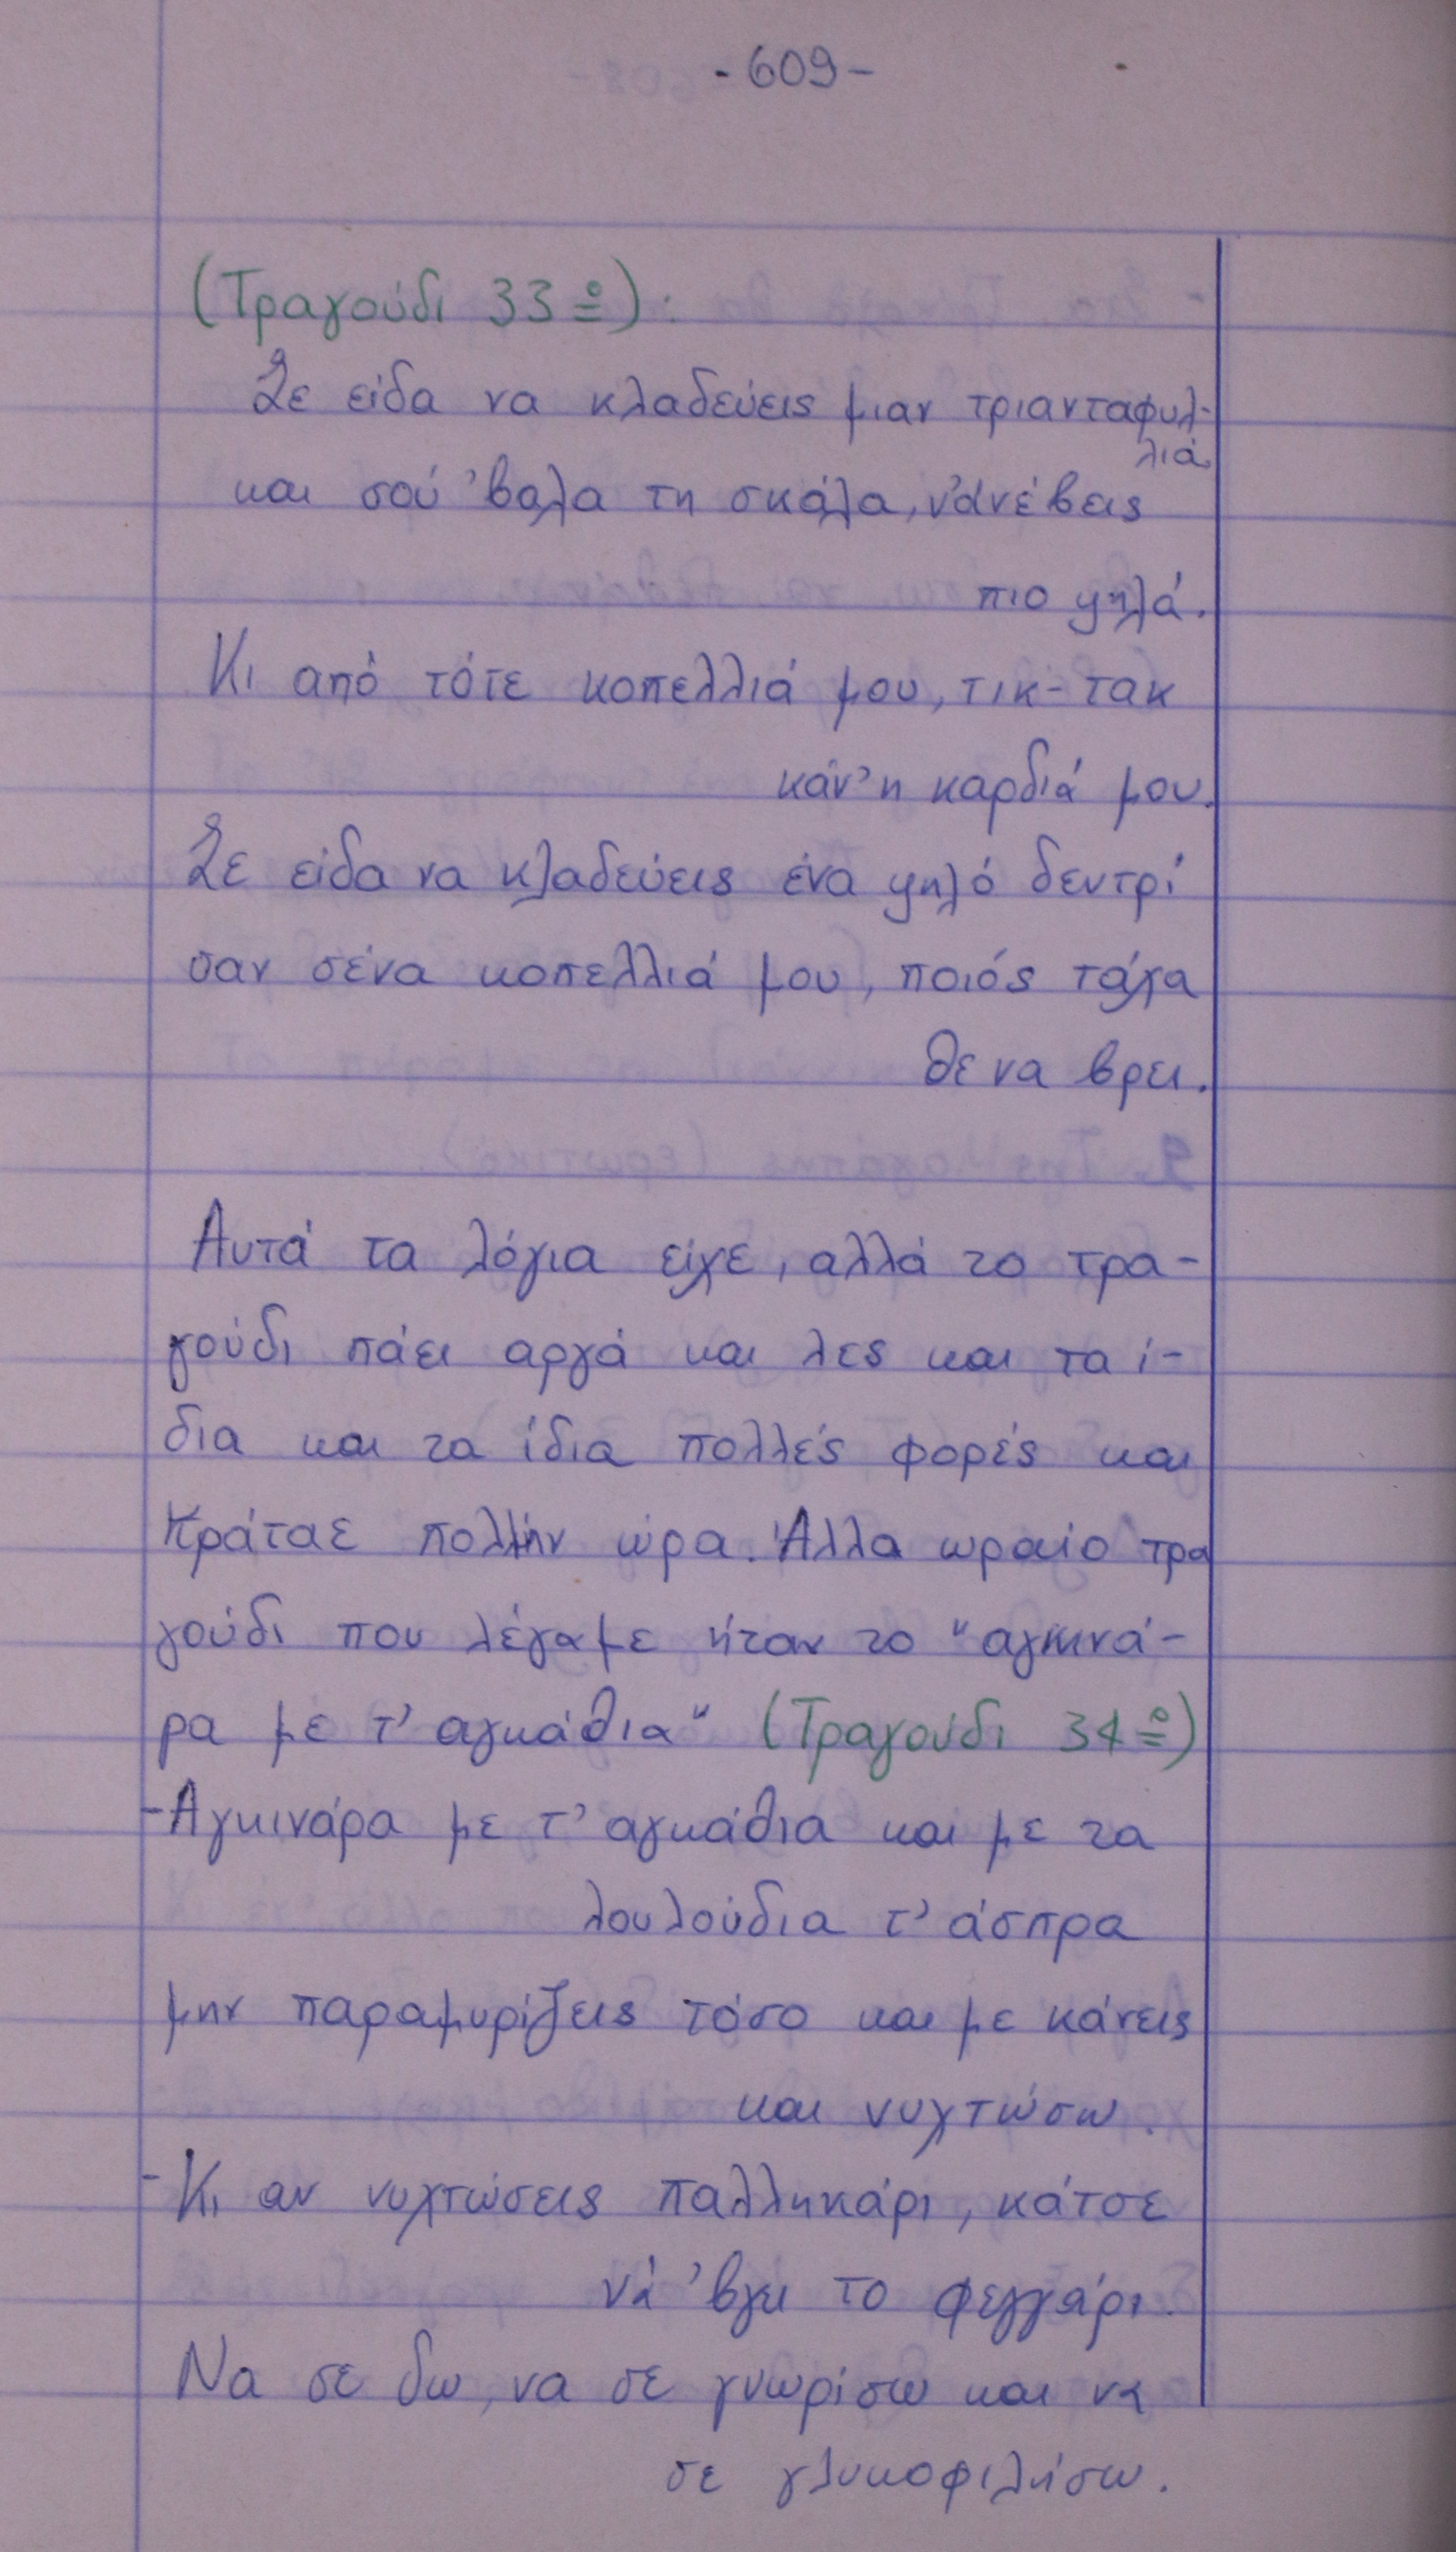 - 609 -
(Τραγούδι 33º):
Σε είδα να κλαδεύεις μιαν τριανταφυλ-
λιά
και σού 'βαλα τη σκάλα, ν'ανέβεις
πιο ψηλά.
Κι από τότε κοπελλιά μου, τικ-τακ
κάν' η καρδιά μου.
Σε είδα να κλαδεύεις ένα ψηλό δεντρί
σαν σένα κοπελλιά μου, ποιός τάχα
θε να βρει.
Αυτά τα λόγια είχε, αλλά το τρα-
γούδι πάει αργά και λες και τα ί-
δια και τα ίδια πολλές φορές και
κράταε πολλήν ώρα. Άλλα ωραίο τρα
γούδι που λέγαμε ήταν το "αγκινά-
ρα με τ' αγκάθια" (Τραγούδι 34º)
-Αγκινάρα με τ' αγκάθια και με τα
λουλούδια τ' άσπρα
μην παραμυρίζεις τόσο και με κάνεις
και νυχτώσω.
-Κι αν νυχτώσεις παλληκάρι, κάτσε
νά 'βγει το φεγγάρι.
Να σε δω, να σε γνωρίσω και να
σε γλυκοφιλήσω.